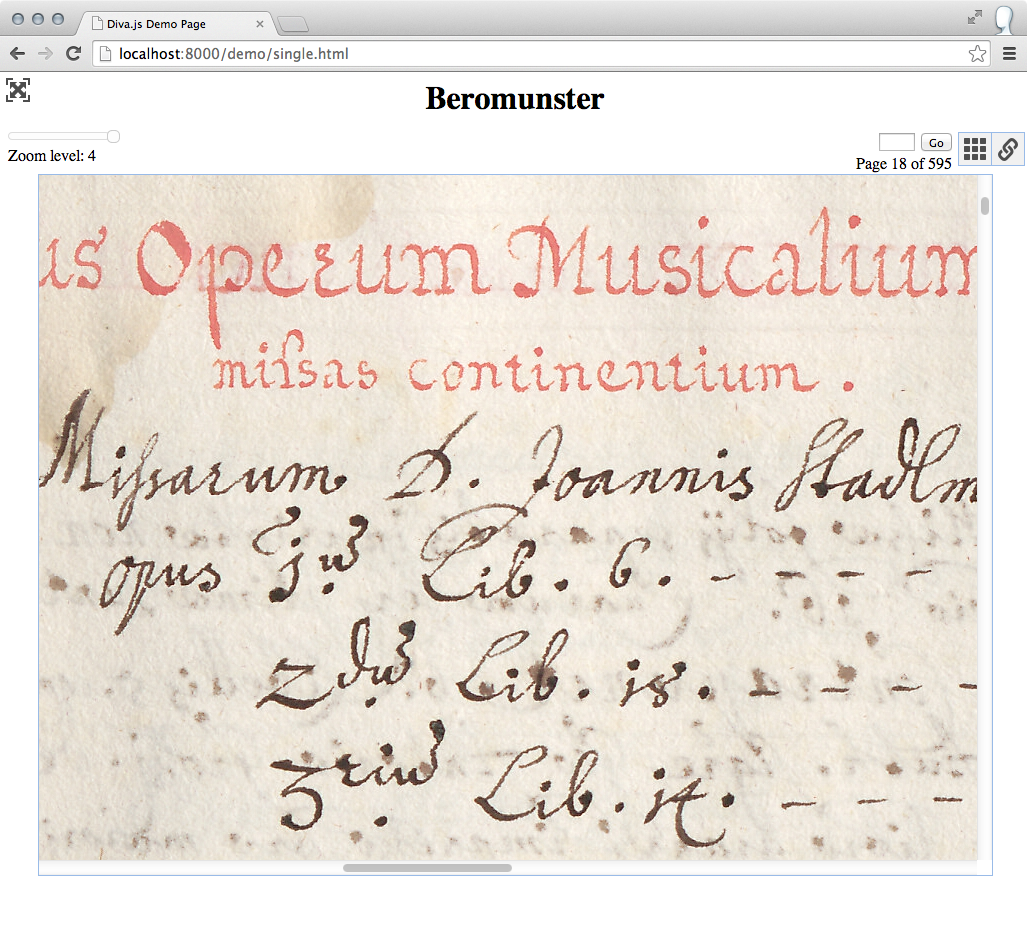 Diva.js Demo Page
localhost:8000/demo/single.html
Beromunster
Zoom level: 4
Go
Page 18 of 595
us Operum Musicalium
miſsas continentium.
Miſsarum D. Joannis Stadlm
opus 1us Lib. 6. - - - -
2dus Lib. 18. - - - -
3rius Lib. 14. - - -